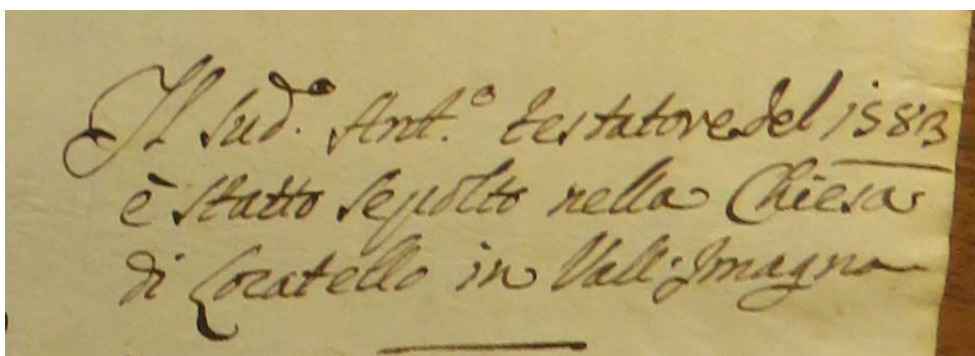 Il sud.º Ant.º testatore del 1583
è statto sepolto nella Chiesa
di Locatello in Vall'Imagna